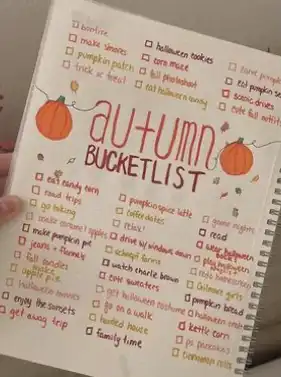 bonfire
make s'mores
pumpkin patch
trick or treat
halloween cookies
corn maze
fall photoshoot
eat halloween candy
carve pumpk
eat pumpkin se
scenic drives
cute fall outfits
autumn
BUCKETLIST
eat candy corn
road trips
go hiking
make caramel apples
make pumpkin pie
jeans + flannels
fall candles
make
apple pie
halloween movies
enjoy the sunsets
get away trip
pumpkin spice latte
coffee dates
relax!
drive w/ windows down
school farms
watch charlie brown
cute sweaters
get halloween costume
go on a walk
haunted house
family time
game nights
read
wear halloween
play halloween
Gilmore girls
pumpkin bread
halloween crafts
kettle corn
pj
cinnamon rolls